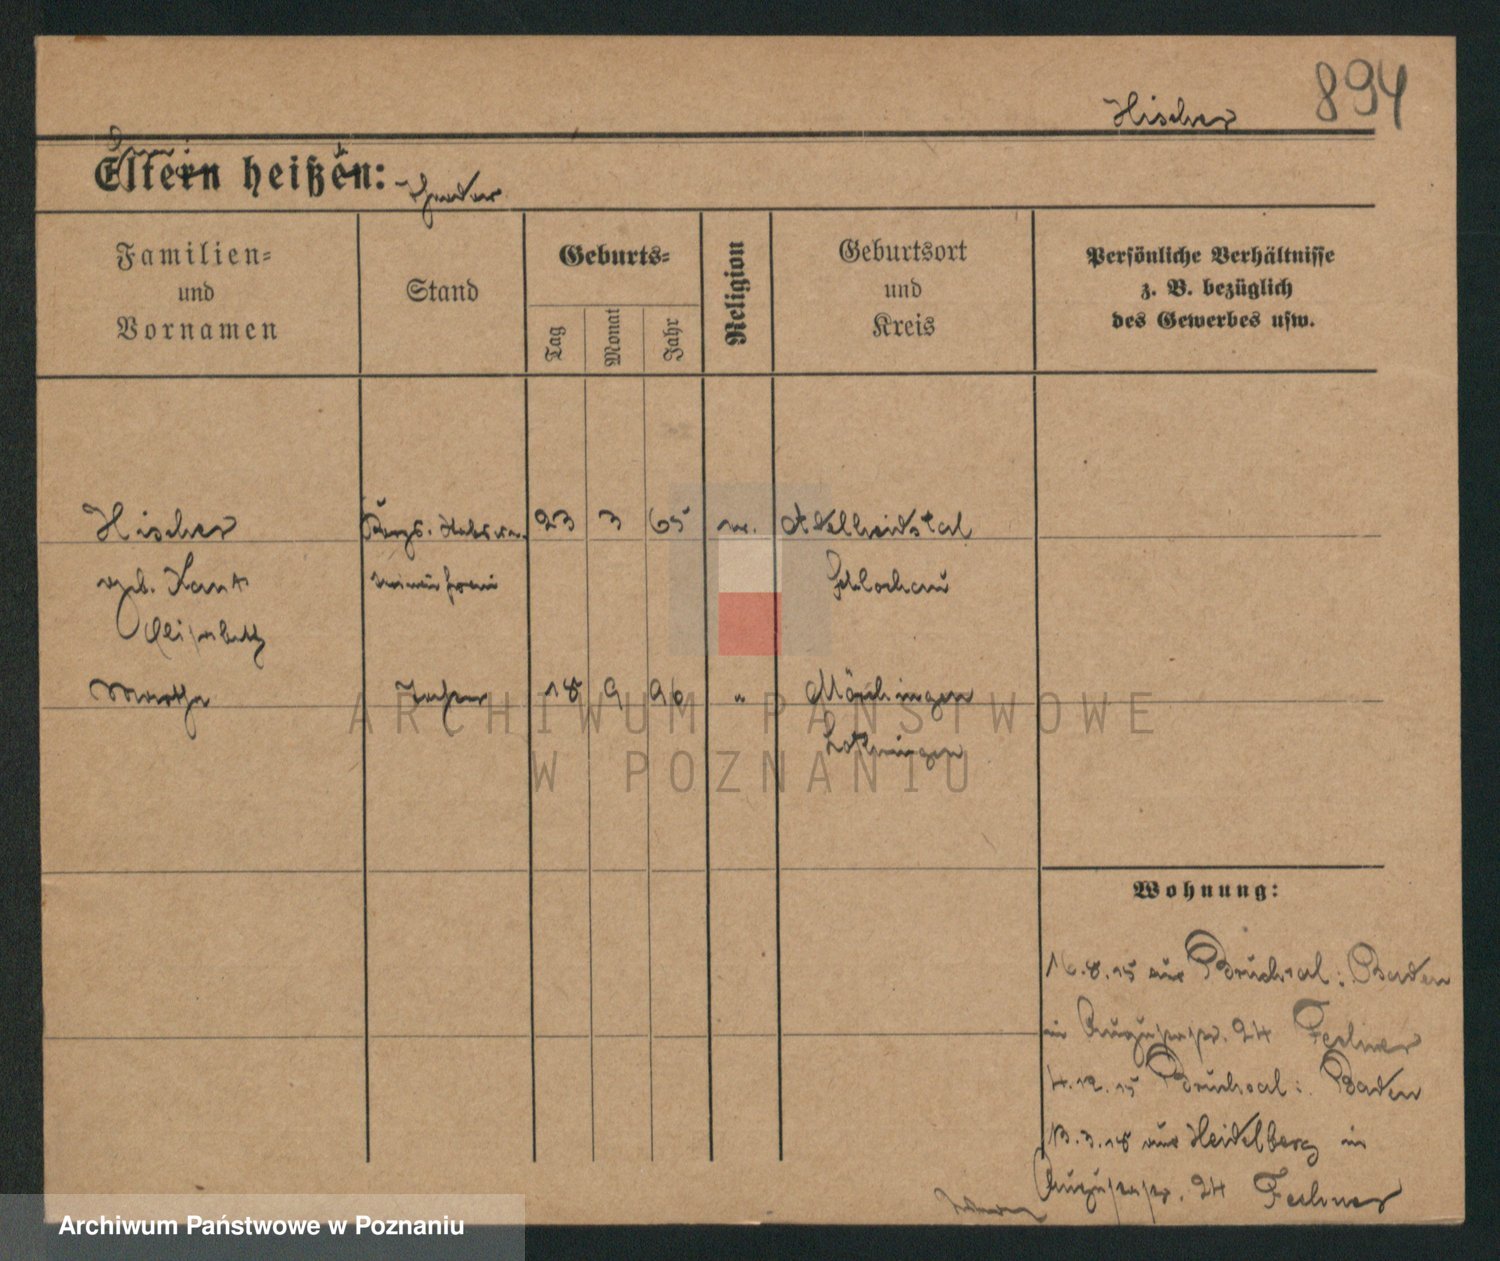 894
Hischer
Eltern heißen:
Familien-
und
Vornamen
Stand
Geburts-
Tag
Monat
Jahr
Religion
Geburtsort
und
Kreis
Persönliche Verhältnisse
z. B. bezüglich
des Gewerbes usw.
Hischer 23 3 65 Adelheidstal
geb. Schlochau
Elisabeth
Martha 18 9 96 "
Lothringen
ARCHIWUM PAŃSTWOWE
W POZNANIU
Wohnung:
16.8.15 aus Bruchsal: Baden
in 24 Fechner
4.12.15 Bruchsal: Baden
13.3.18 aus Heidelberg in
24 Fechner
Archiwum Państwowe w Poznaniu